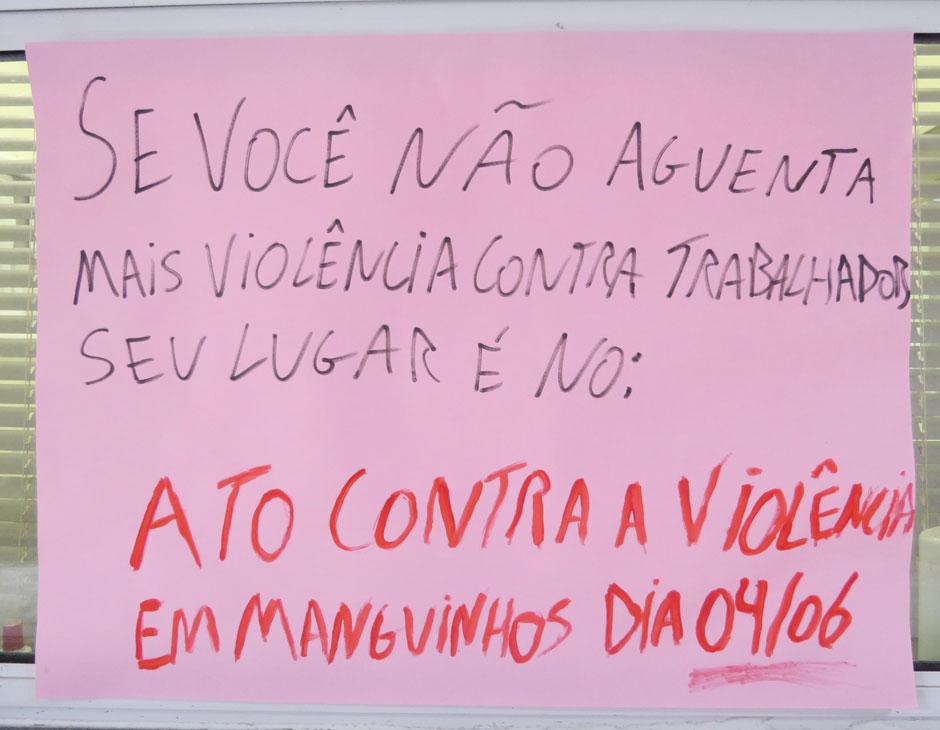 SE VOCÊ NÃO AGUENTA
MAIS VIOLÊNCIA CONTRA TRABALHADOR,
SEU LUGAR É NO:
ATO CONTRA A VIOLÊNCIA
EM MANGUINHOS DIA 04/06